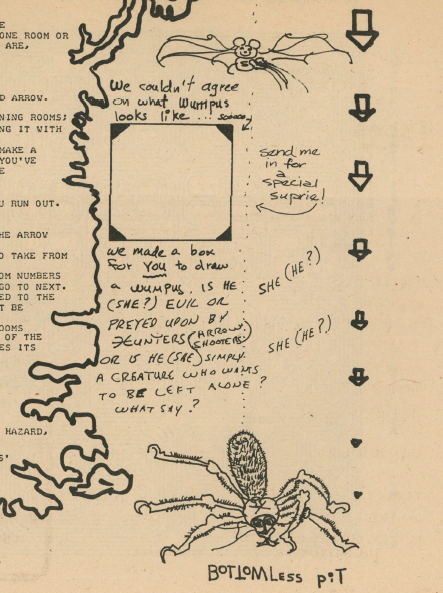 E
ONE ROOM OR
ARE,
D ARROW.
NING ROOMS;
NG IT WITH
MAKE A
YOU'VE
E
U RUN OUT.
HE ARROW
O TAKE FROM
OM NUMBERS
GO TO NEXT.
ED TO THE
T BE
OOMS
OF THE
ES ITS
HAZARD,
S'
We couldn't agree
on what Wumpus
looks like ... soooo,
send me
in for
a
special
suprie!
we made a box
for You to draw
a WUMPUS. IS HE
(SHE?) EVIL OR
PREYED UPON BY
HUNTERS (ARROW
SHOOTERS)
OR IS HE (SHE) SIMPLY
A CREATURE WHO WANTS
TO BE LEFT ALONE?
WHAT SAY?
SHE (HE?)
SHE (HE?)
BOTTOMLess piT